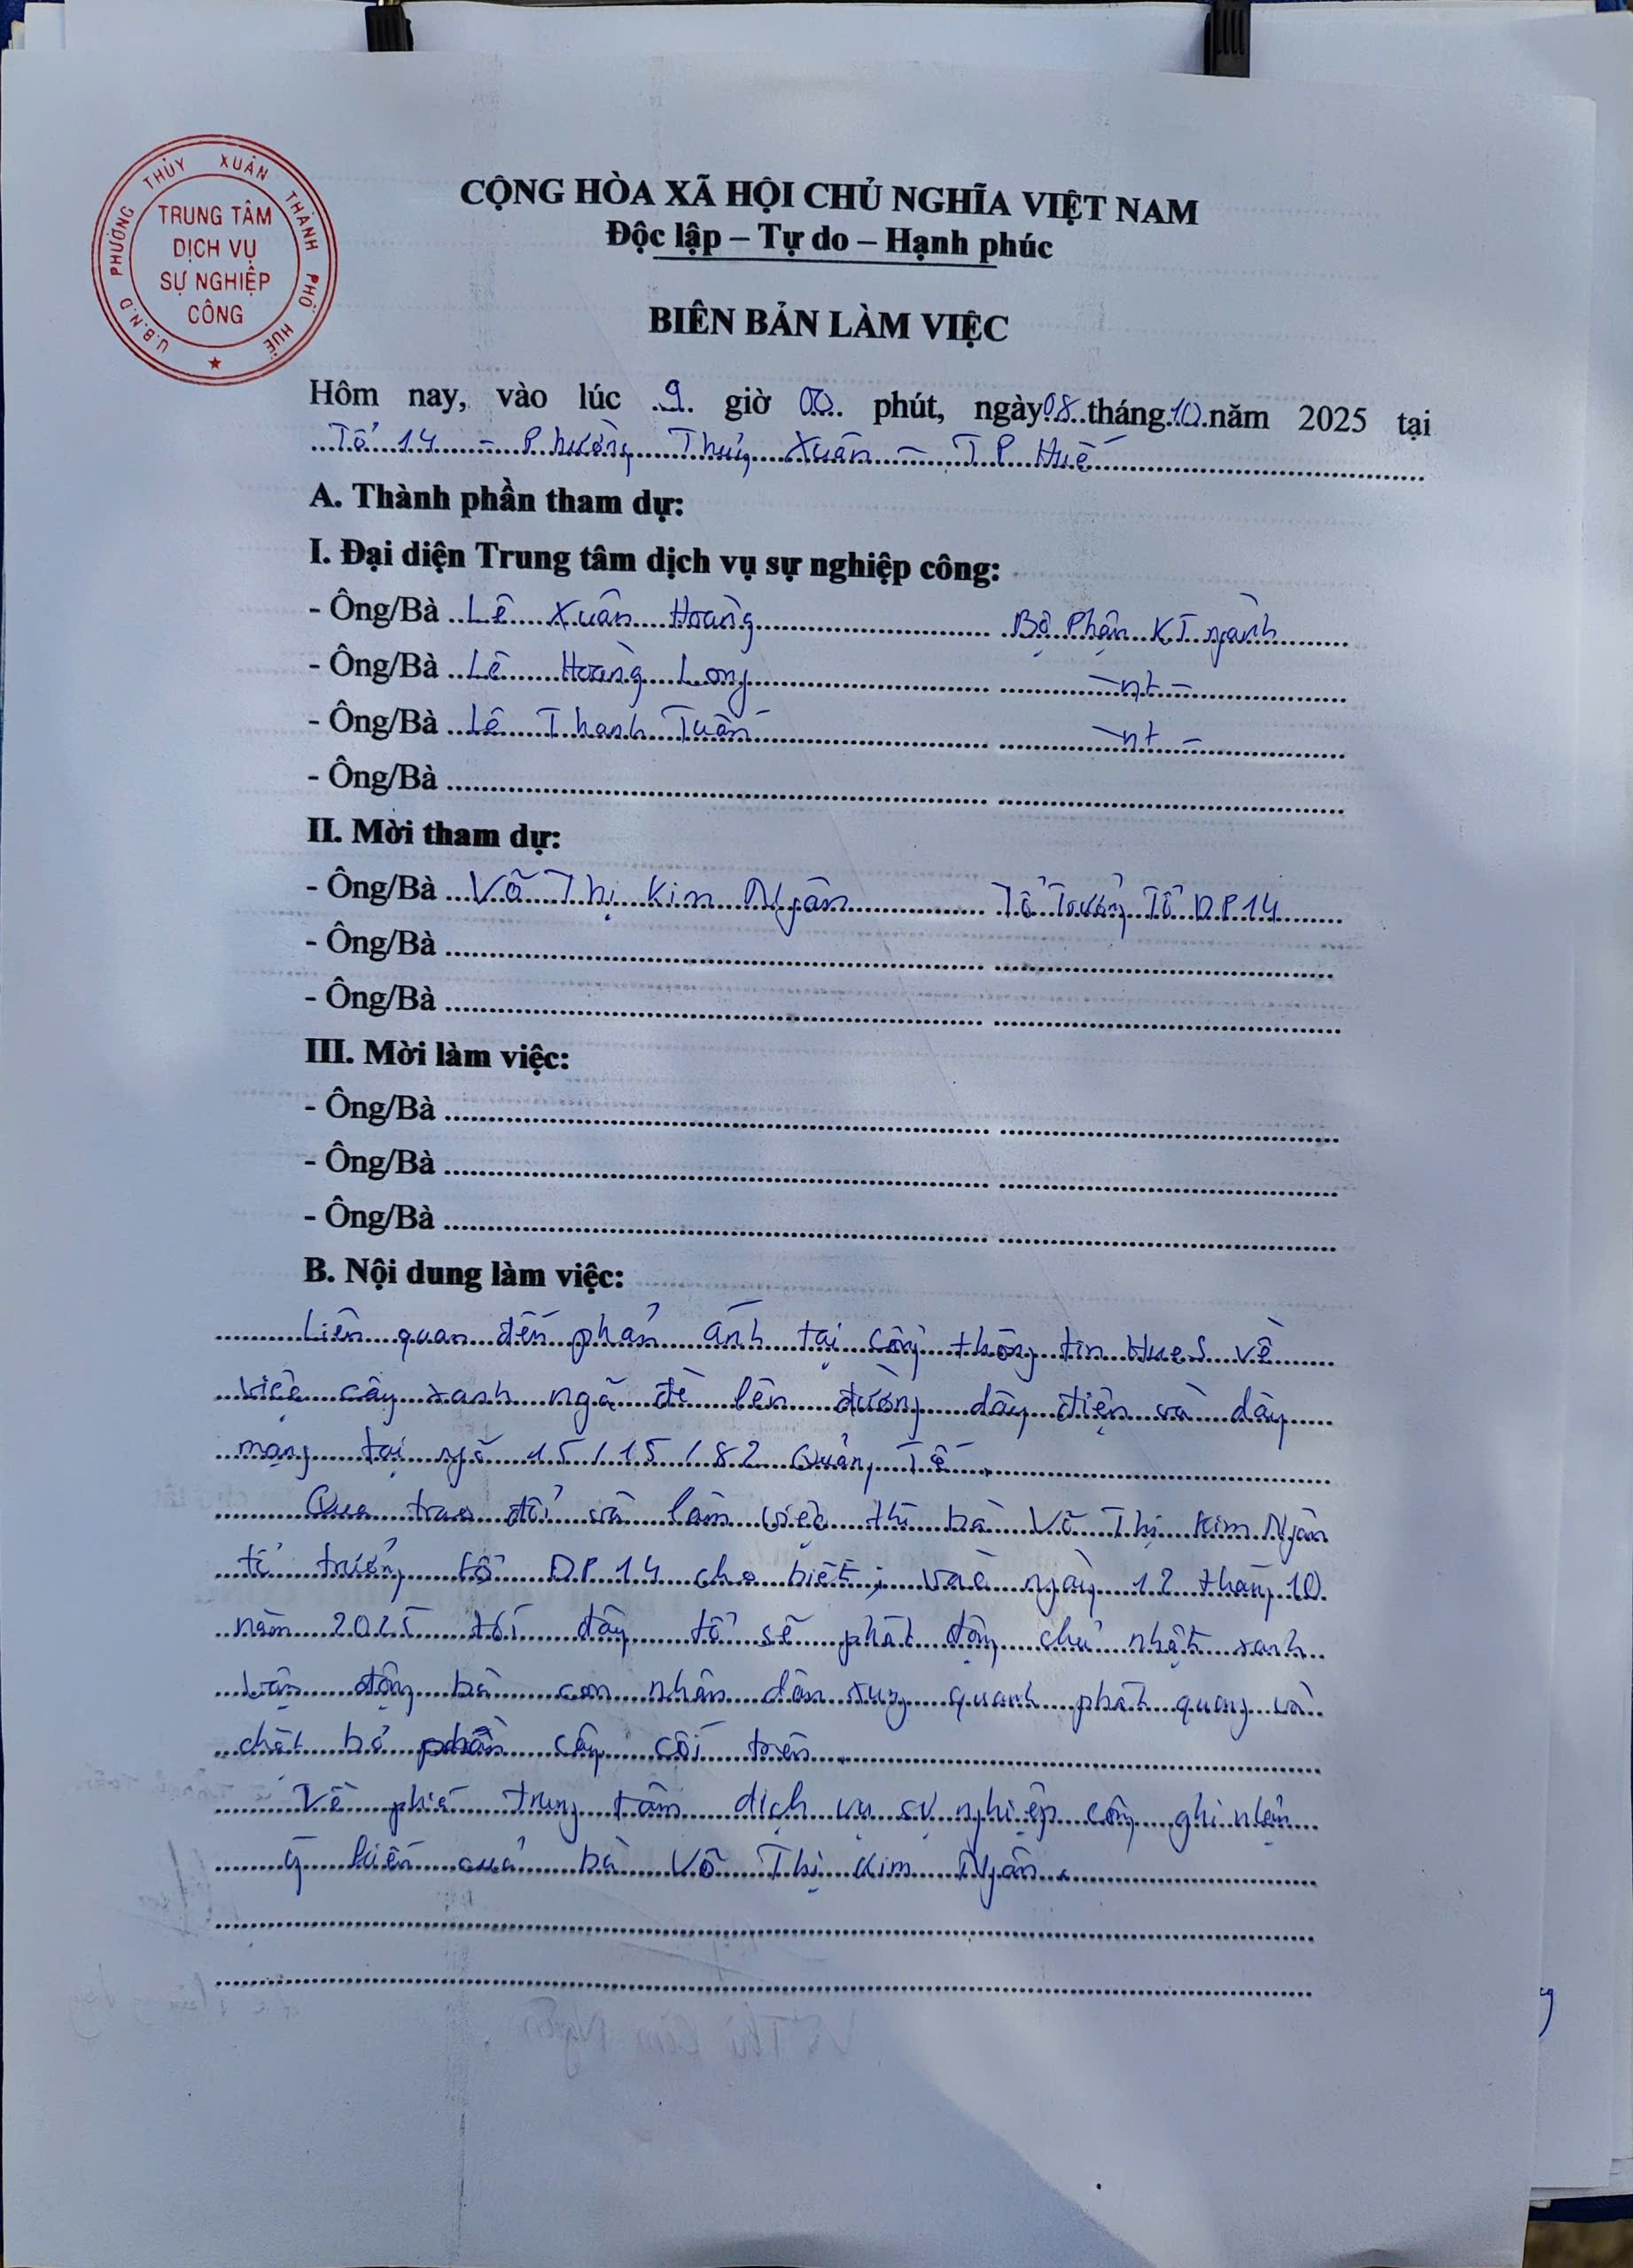 U.B.N.D PHƯỜNG THỦY XUÂN THÀNH PHỐ HUẾ
TRUNG TÂM
DỊCH VỤ
SỰ NGHIỆP
CÔNG
CỘNG HÒA XÃ HỘI CHỦ NGHĨA VIỆT NAM
Độc lập – Tự do – Hạnh phúc
BIÊN BẢN LÀM VIỆC
Hôm nay, vào lúc 9 giờ 00 phút, ngày 08 tháng 10 năm 2025 tại
Tổ 14 – Phường Thuỷ Xuân – TP Huế
A. Thành phần tham dự:
I. Đại diện Trung tâm dịch vụ sự nghiệp công:
- Ông/Bà Lê Xuân Hoàng Bộ Phận KT ngành
- Ông/Bà Lê Hoàng Long –nt–
- Ông/Bà Lê Thanh Tuấn –nt–
- Ông/Bà
II. Mời tham dự:
- Ông/Bà Võ Thị Kim Ngân Tổ Trưởng Tổ D.P.14
- Ông/Bà
- Ông/Bà
III. Mời làm việc:
- Ông/Bà
- Ông/Bà
- Ông/Bà
B. Nội dung làm việc:
Liên quan đến phản ánh tại cổng thông tin HueS về
việc cây xanh ngã đè lên đường dây điện và dây
mạng tại ngõ 15/15/82 Quảng Tế.
Qua trao đổi và làm việc thì bà Võ Thị Kim Ngân
tổ trưởng tổ D.P.14 cho biết; vào ngày 12 tháng 10
năm 2025 tới đây tổ sẽ phát động chủ nhật xanh
vận động bà con nhân dân xung quanh phát quang và
chặt bỏ phần cây cối trên.
Về phía trung tâm dịch vụ sự nghiệp công ghi nhận
ý kiến của bà Võ Thị Kim Ngân.